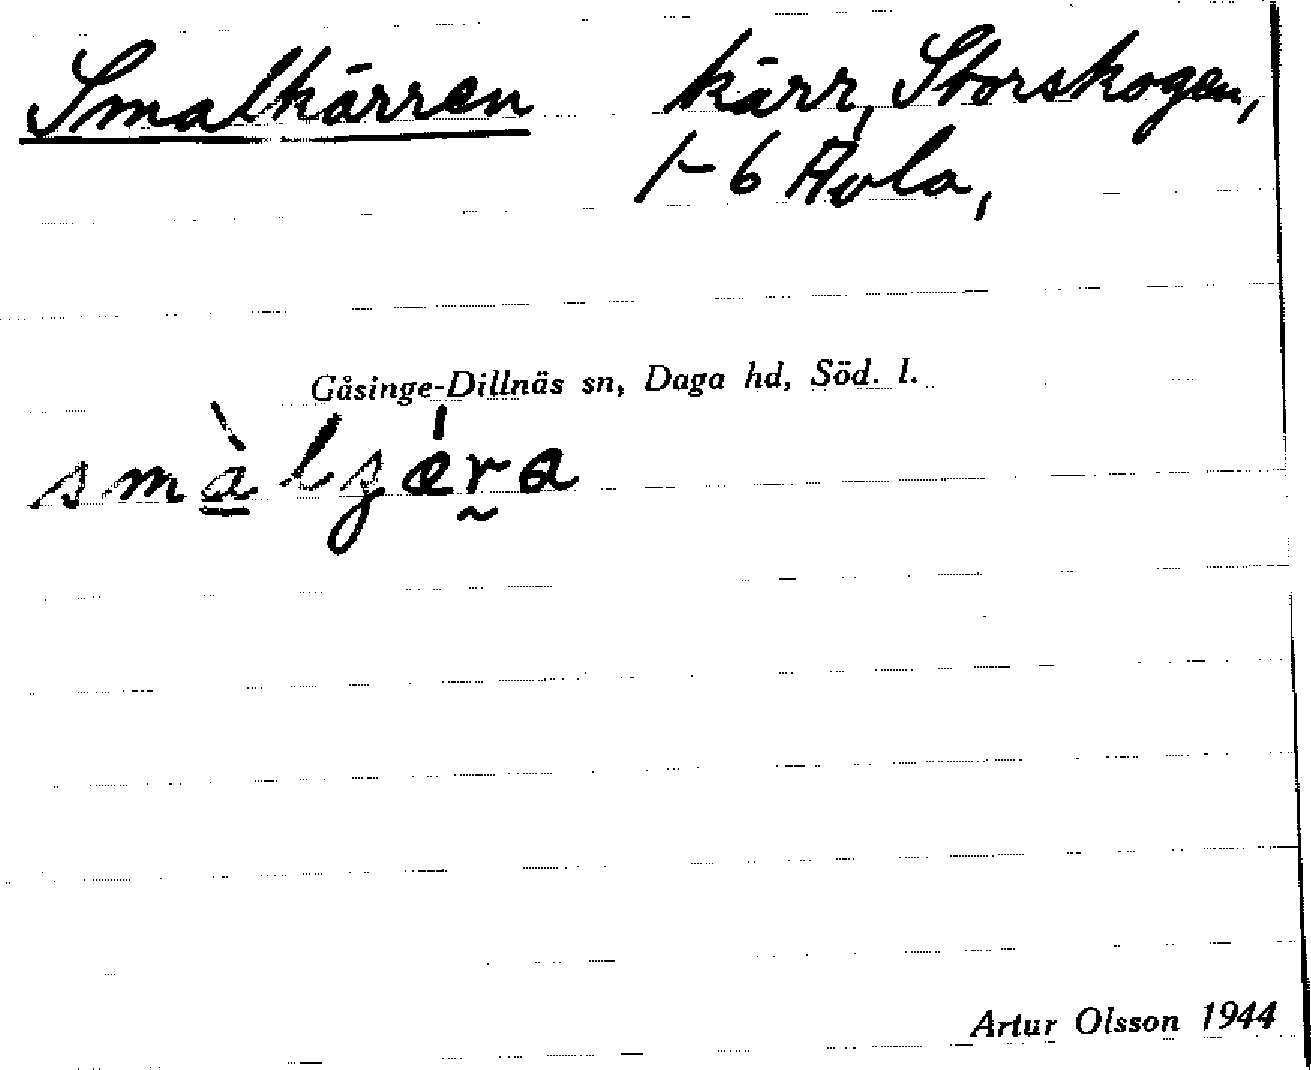 Smalkärren kärr, Storskogen,
1-6 Åvla,
Gåsinge-Dillnäs sn, Daga hd, Söd. l.
smàlʒæ̍r̰a
Artur Olsson 1944